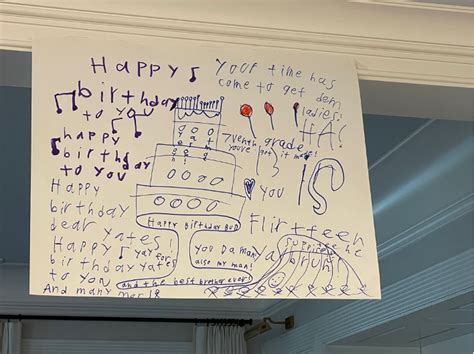 Happy
birthday
to you
happy
birthday
to you
Happy
birthday
dear yates!
Happy
birthday yates
to you
And many
your time has
come to get dem
ladies!
HA!
7venth grade
you
Flirtteen
Happy Birthday BUD
YOU Da man
also my man!
and the best brother ever!
bruh!